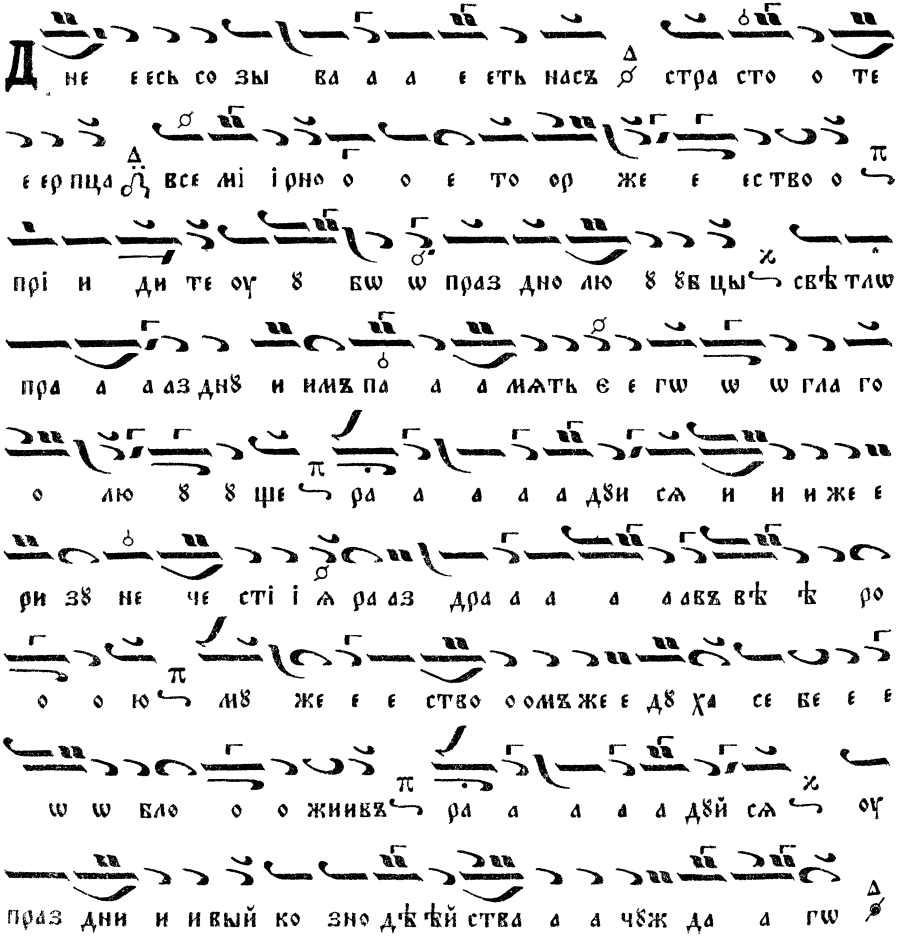 Д не е есь со зы ва а а е еть насъ страсто о те
е ер пца все мі ірно о о е то ор же е ество о
прі и ди те оу ꙋ бѡ ѡ праздно лю ꙋ ꙋб цы свѣтлѡ
пра а а аз днꙋ и имъ па а а мѧть є е гѡ ѡ ѡ глаго
о лю ꙋ ꙋ ще ра а а а а дꙋи сѧ и и и же е
ри зꙋ не че сті і ѧ ра аз дра а а а а авъ вѣ ѣ ро
о о ю мꙋ же е е ство о омъ же е дꙋ ха се бе е е
ѡ ѡ бло о о жи ивъ ра а а а а дꙋй сѧ оу
праз дни и и вый ко зно дѣ ѣй ства а а чꙋж да а гѡ